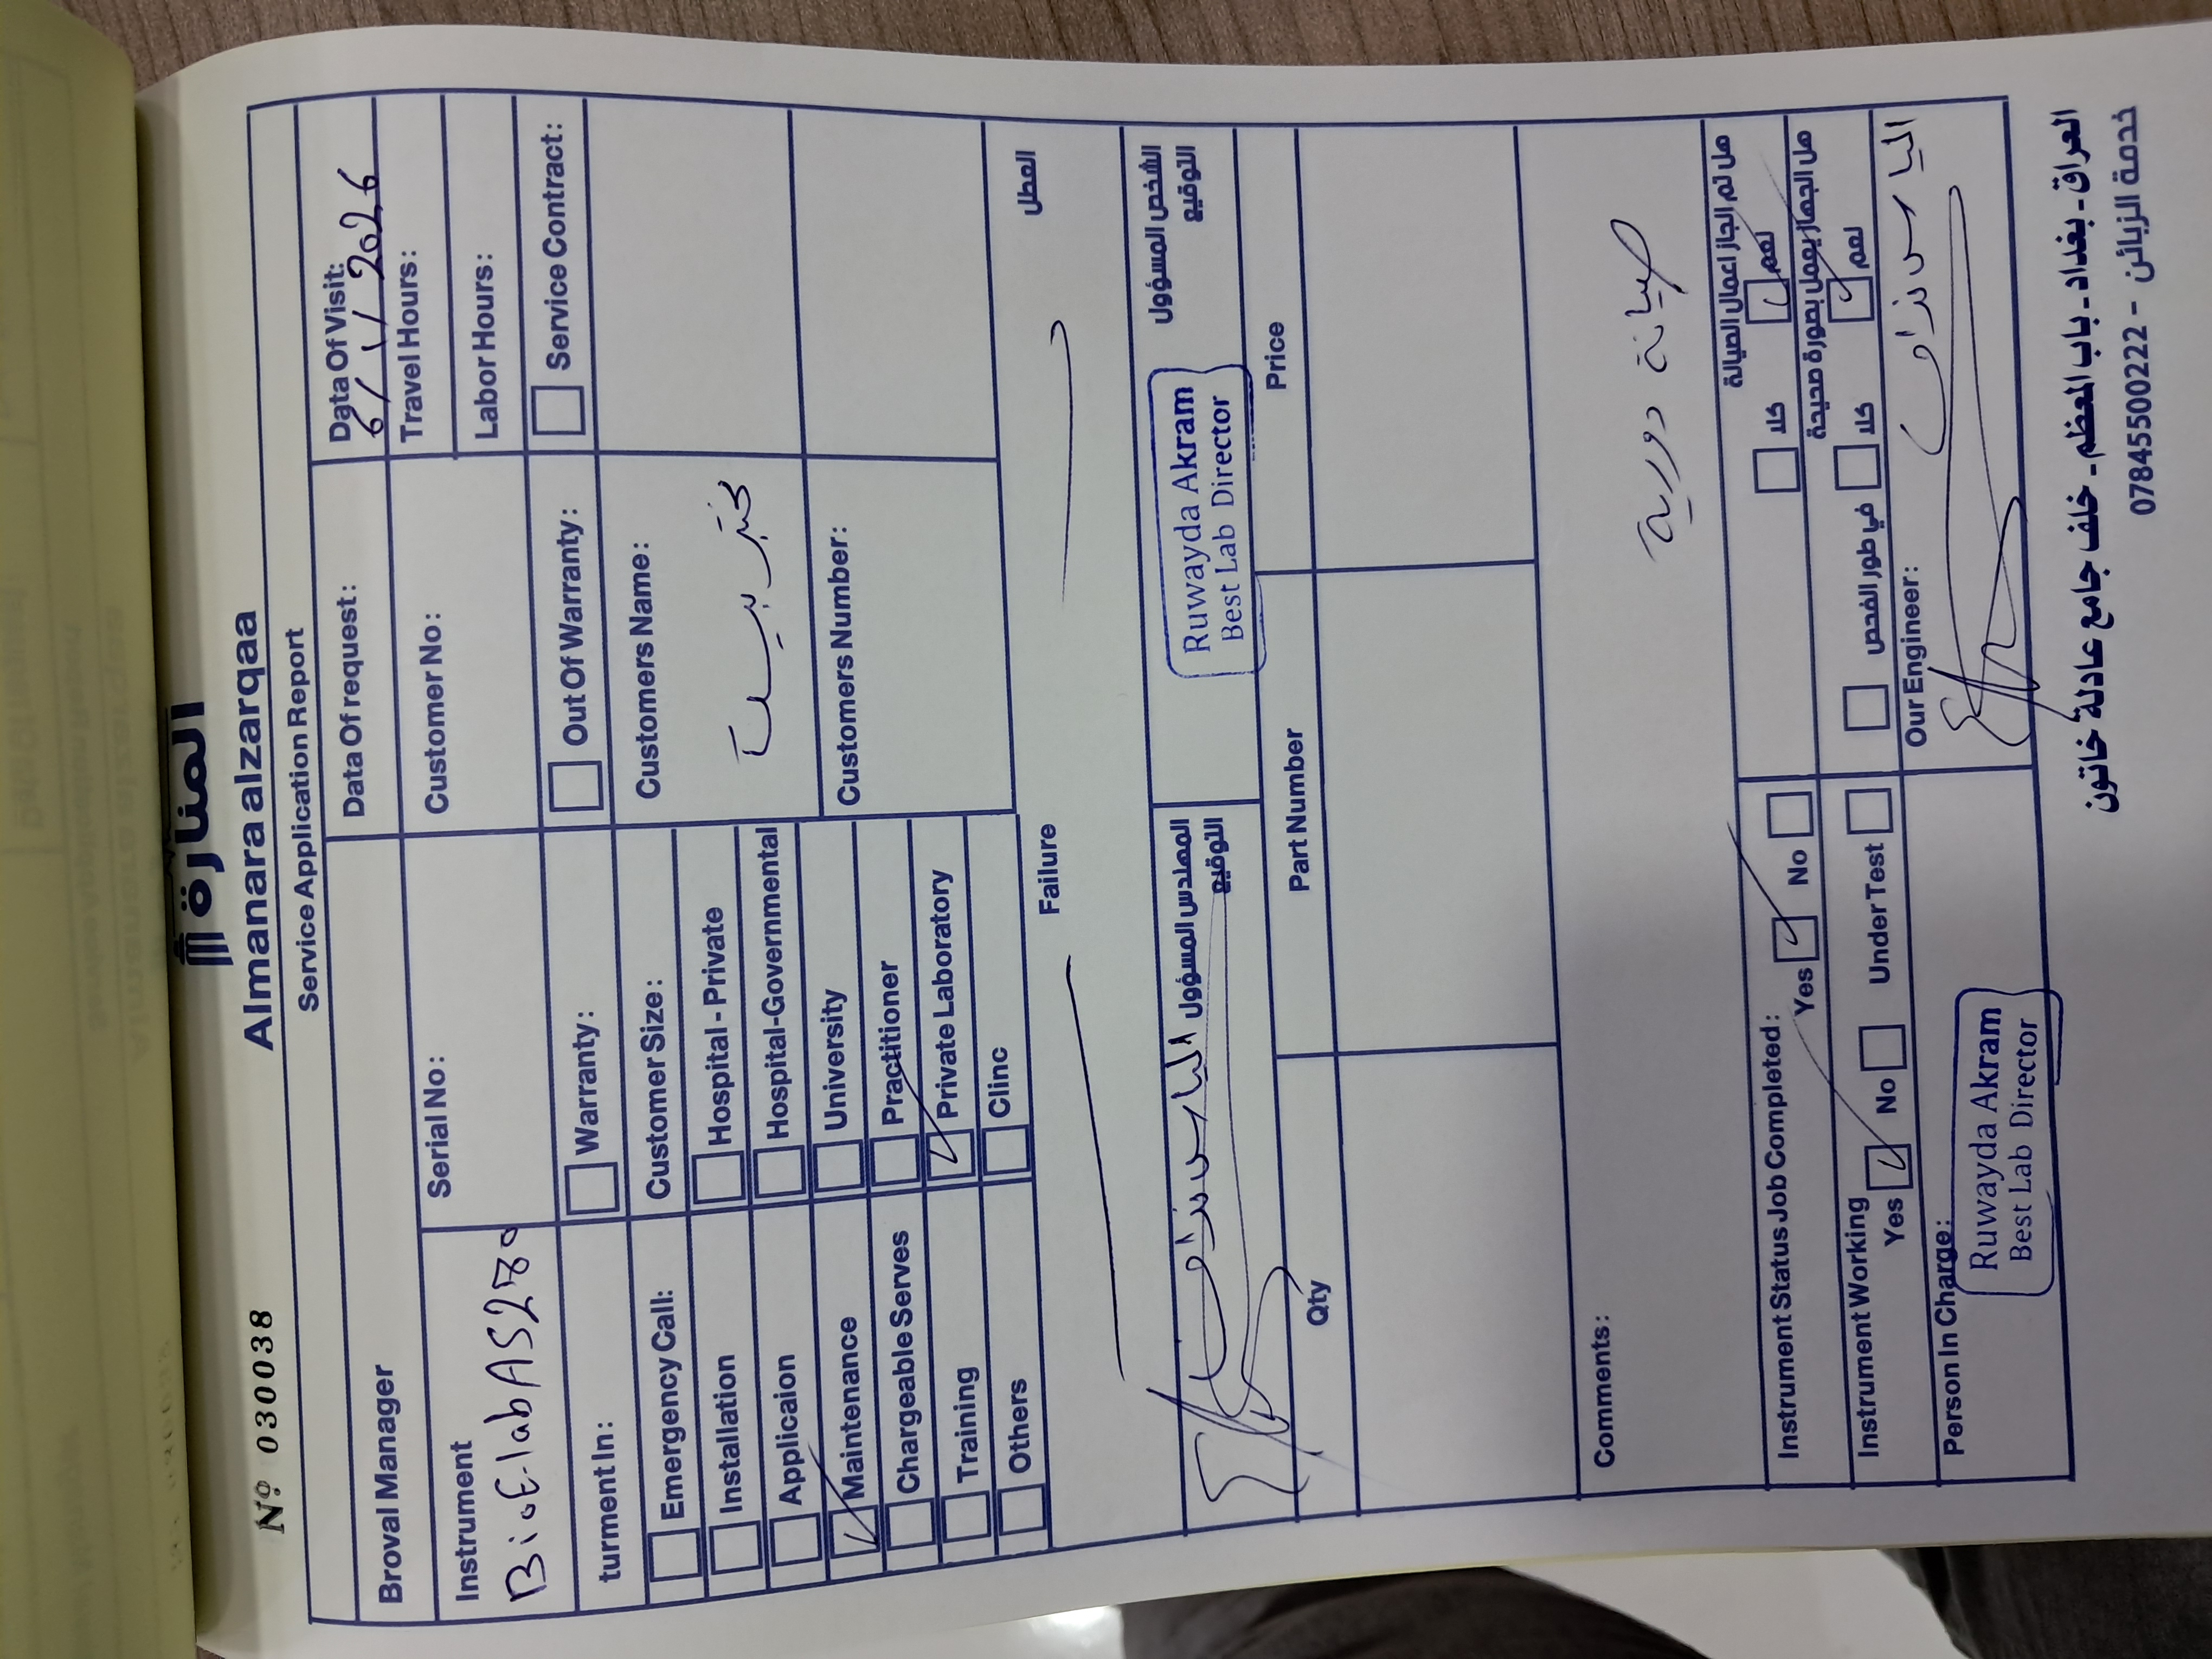 المنارة
Almanara alzarqaa
Nº 030038
Service Application Report
Broval Manager
Data Of request:
Data Of Visit:
6/1/2026
Instrument
BioElab AS280
Serial No:
Customer No:
Travel Hours:
Labor Hours:
turment In:
Warranty:
Out Of Warranty:
Service Contract:
Emergency Call:
Customer Size:
Customers Name:
مختبر بيست
Installation
Hospital - Private
Applicaion
Hospital-Governmental
Maintenance
University
Customers Number:
Chargeable Serves
Practitioner
Training
Private Laboratory
Others
Clinc
Failure
العطل
المهندس المسؤول
التوقيع
الشخص المسؤول
التوقيع
Ruwayda Akram
Best Lab Director
Qty
Part Number
Price
Comments:
صيانة دورية
Instrument Status Job Completed:
Yes
No
هل تم انجاز اعمال الصيانة
كلا
نعم
Instrument Working
Yes
No
Under Test
هل الجهاز يعمل بصورة صحيحة
في طور الفحص
كلا
نعم
Person In Charge:
Ruwayda Akram
Best Lab Director
Our Engineer:
العراق - بغداد - باب المعظم - خلف جامع عادلة خاتون
خدمة الزبائن - 07845500222